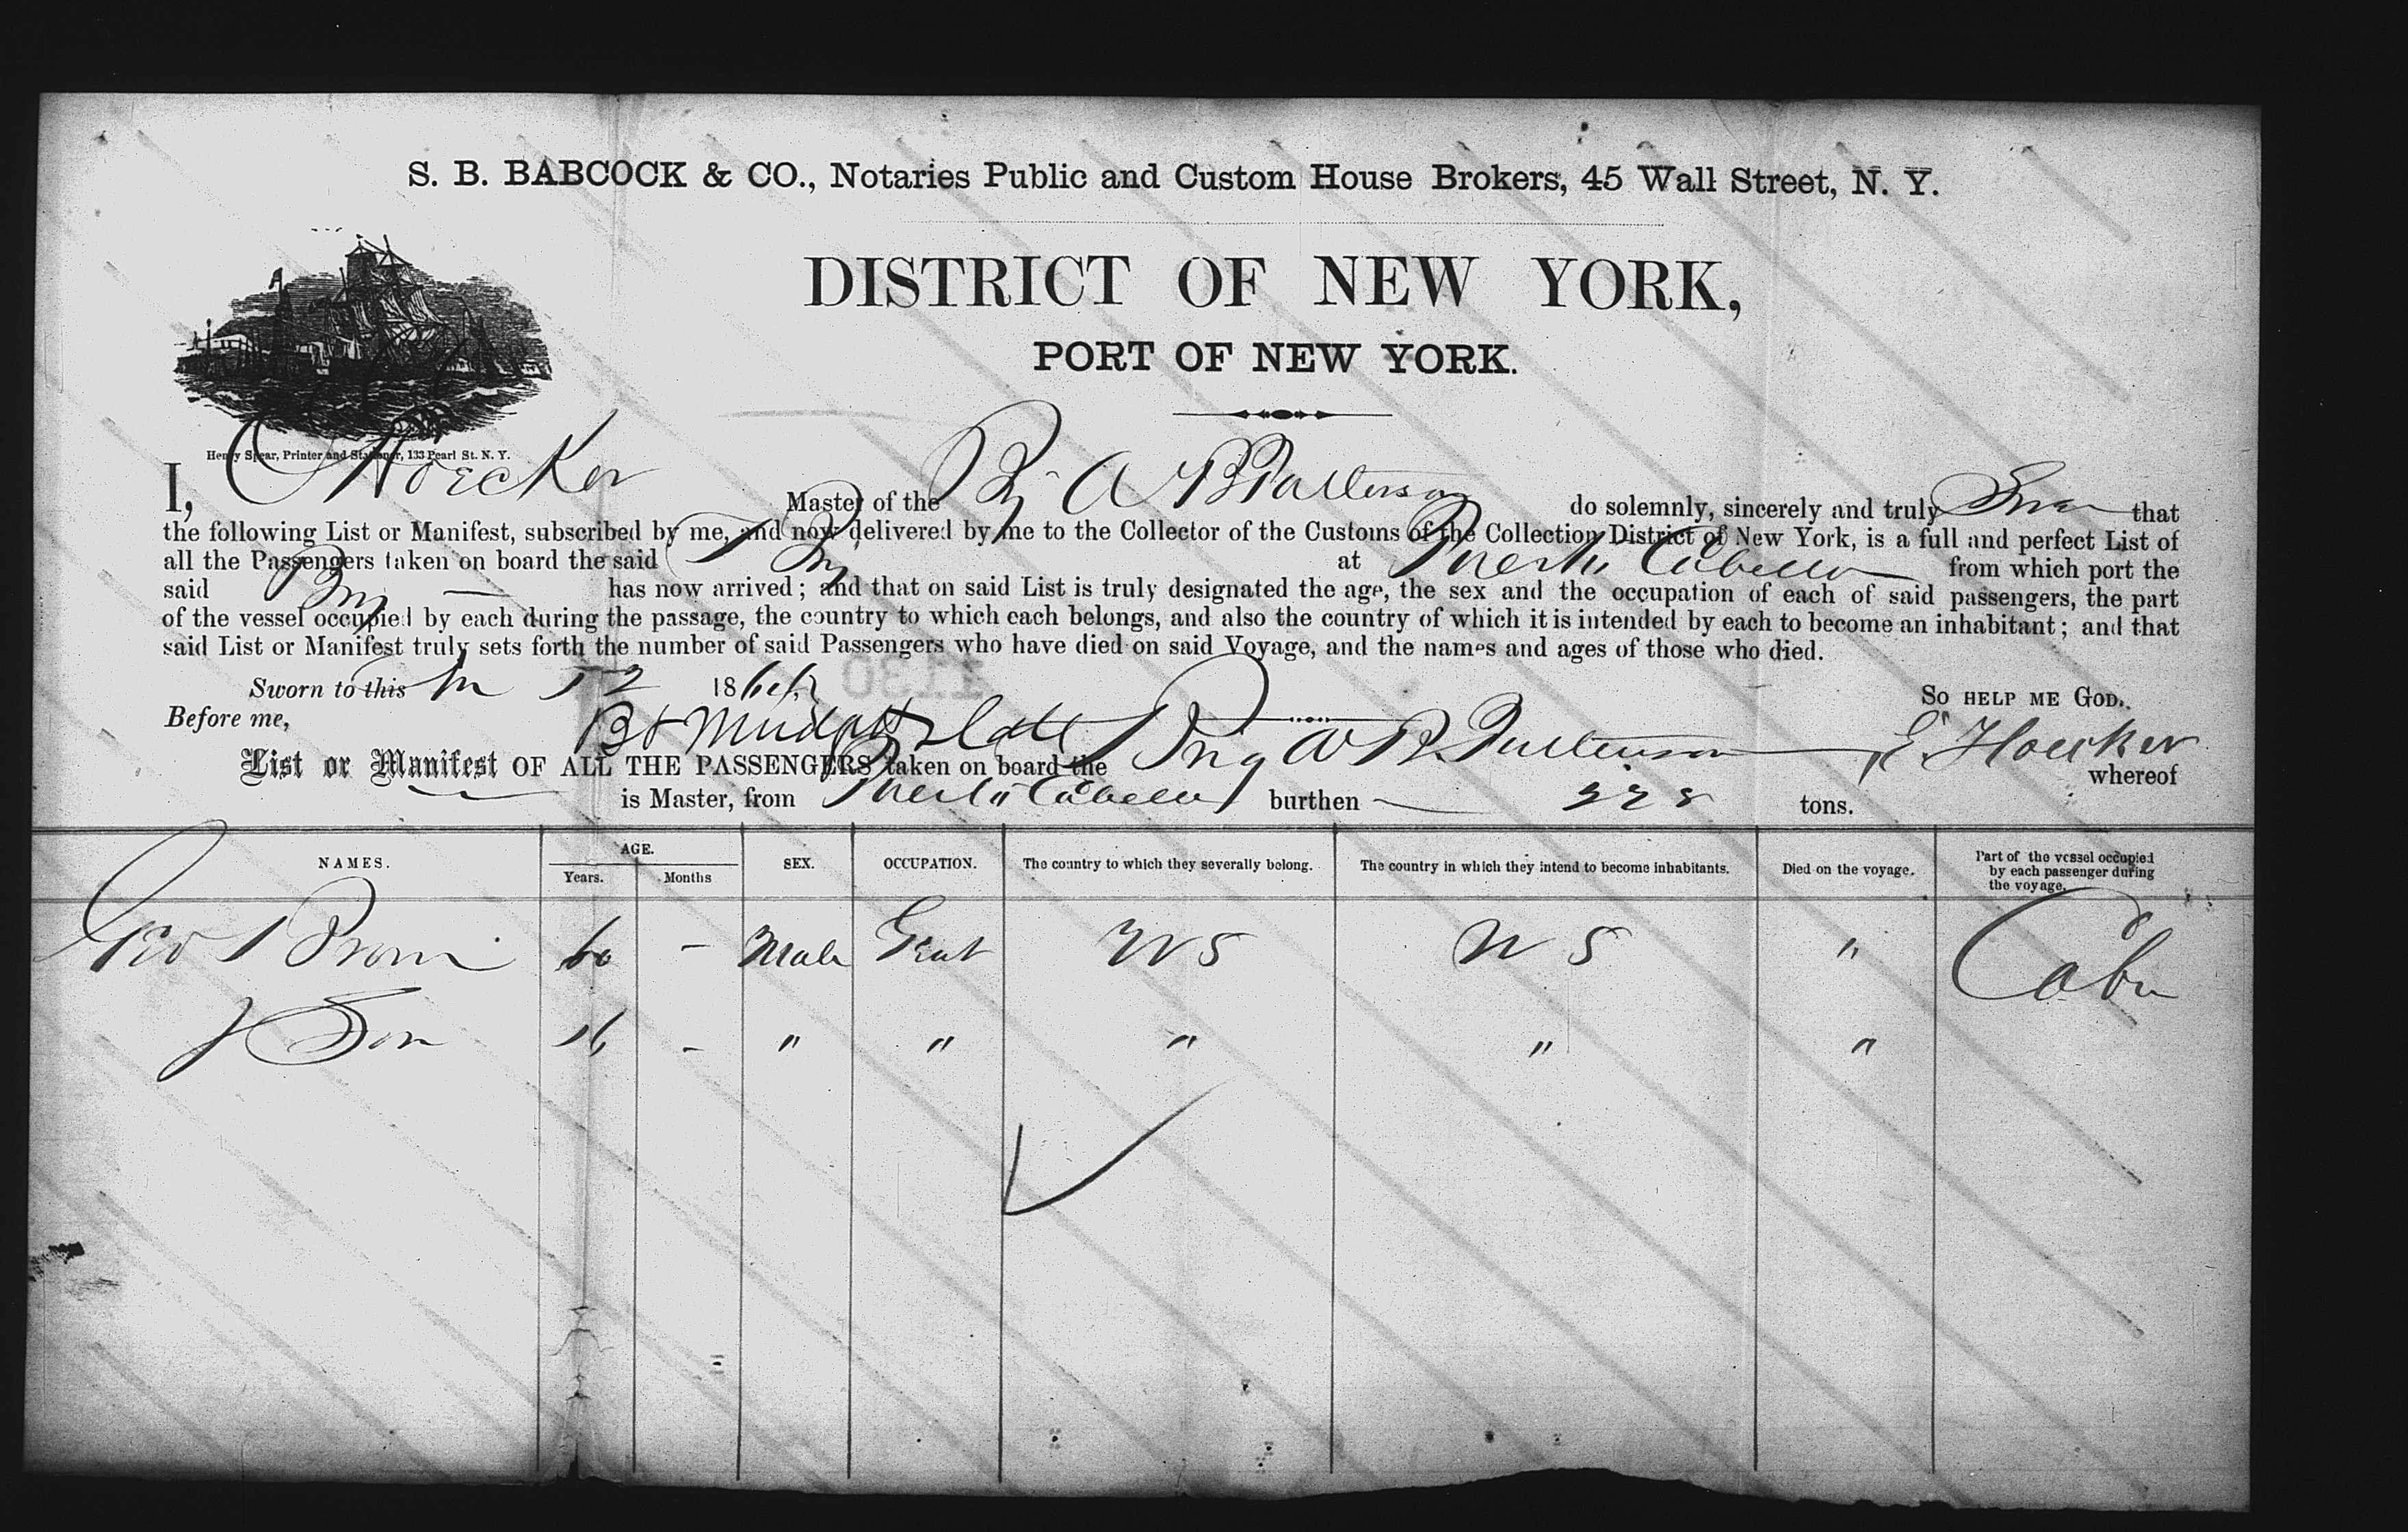 S. B. BABCOCK & CO., Notaries Public and Custom House Brokers, 45 Wall Street, N. Y.
DISTRICT OF NEW YORK,
PORT OF NEW YORK.
Henry Spear, Printer and Stationer, 133 Pearl St. N. Y.
I, Hoecker Master of the A B Patterson do solemnly, sincerely and truly that
the following List or Manifest, subscribed by me, and now delivered by me to the Collector of the Customs of the Collection District of New York, is a full and perfect List of
all the Passengers taken on board the said at Puerto Cabello from which port the
said Brig has now arrived; and that on said List is truly designated the age, the sex and the occupation of each of said passengers, the part
of the vessel occupied by each during the passage, the country to which each belongs, and also the country of which it is intended by each to become an inhabitant; and that
said List or Manifest truly sets forth the number of said Passengers who have died on said Voyage, and the names and ages of those who died.
1130
Sworn to this 18 SO HELP ME GOD.
Before me,
List or Manifest OF ALL THE PASSENGERS taken on board the Brig A B Patterson E Hoecker whereof
is Master, from Puerto Cabello burthen tons.
NAMES. AGE. Years. Months SEX. OCCUPATION. The country to which they severally belong. The country in which they intend to become inhabitants. Died on the voyage. Part of the vessel occupied by each passenger during the voyage.
Geo 60 - Male Gent U S U S " Cabin
Son 16 - " " " " "